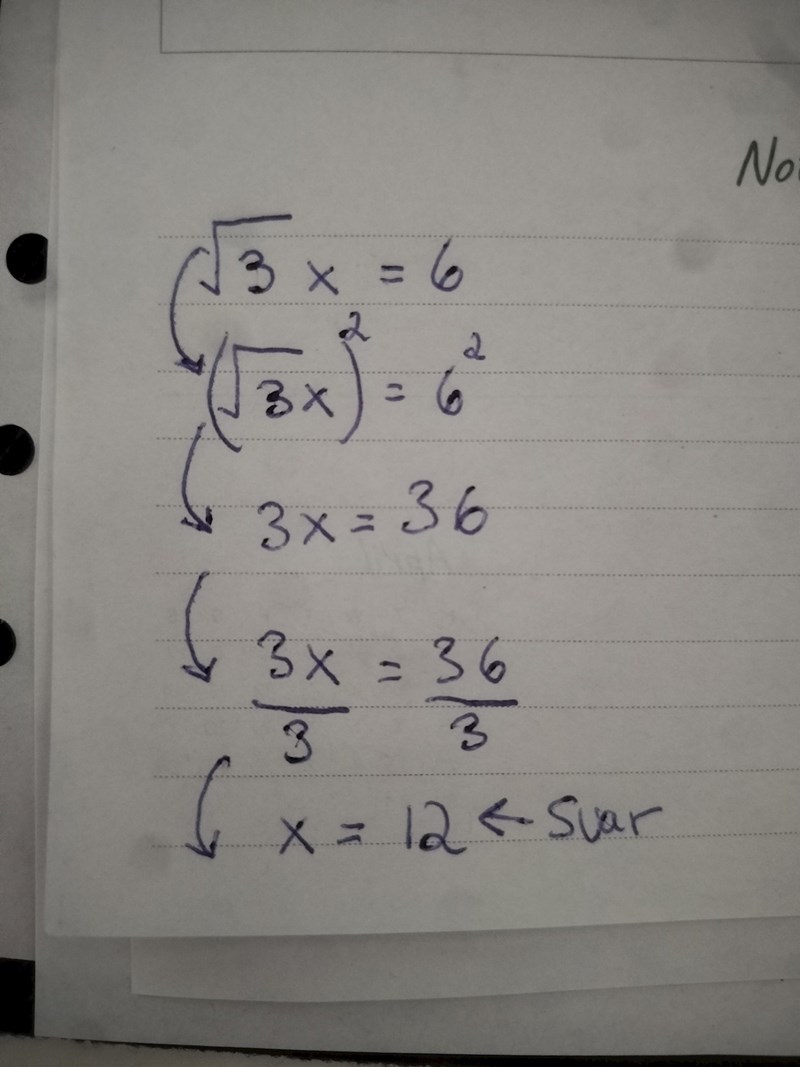 √3 x = 6
(√3x)² = 6²
3x = 36
3x/3 = 36/3
x = 12 ← Svar